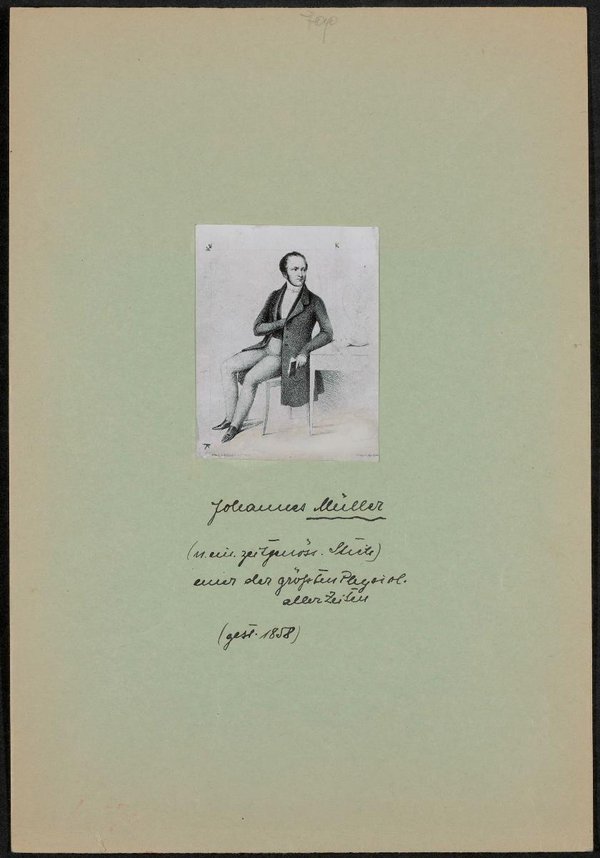 7090
Johannes Müller
(n. ein. zeitgenöss. Stich)
einer der größten Physiol.
aller Zeiten
(gest. 1858)